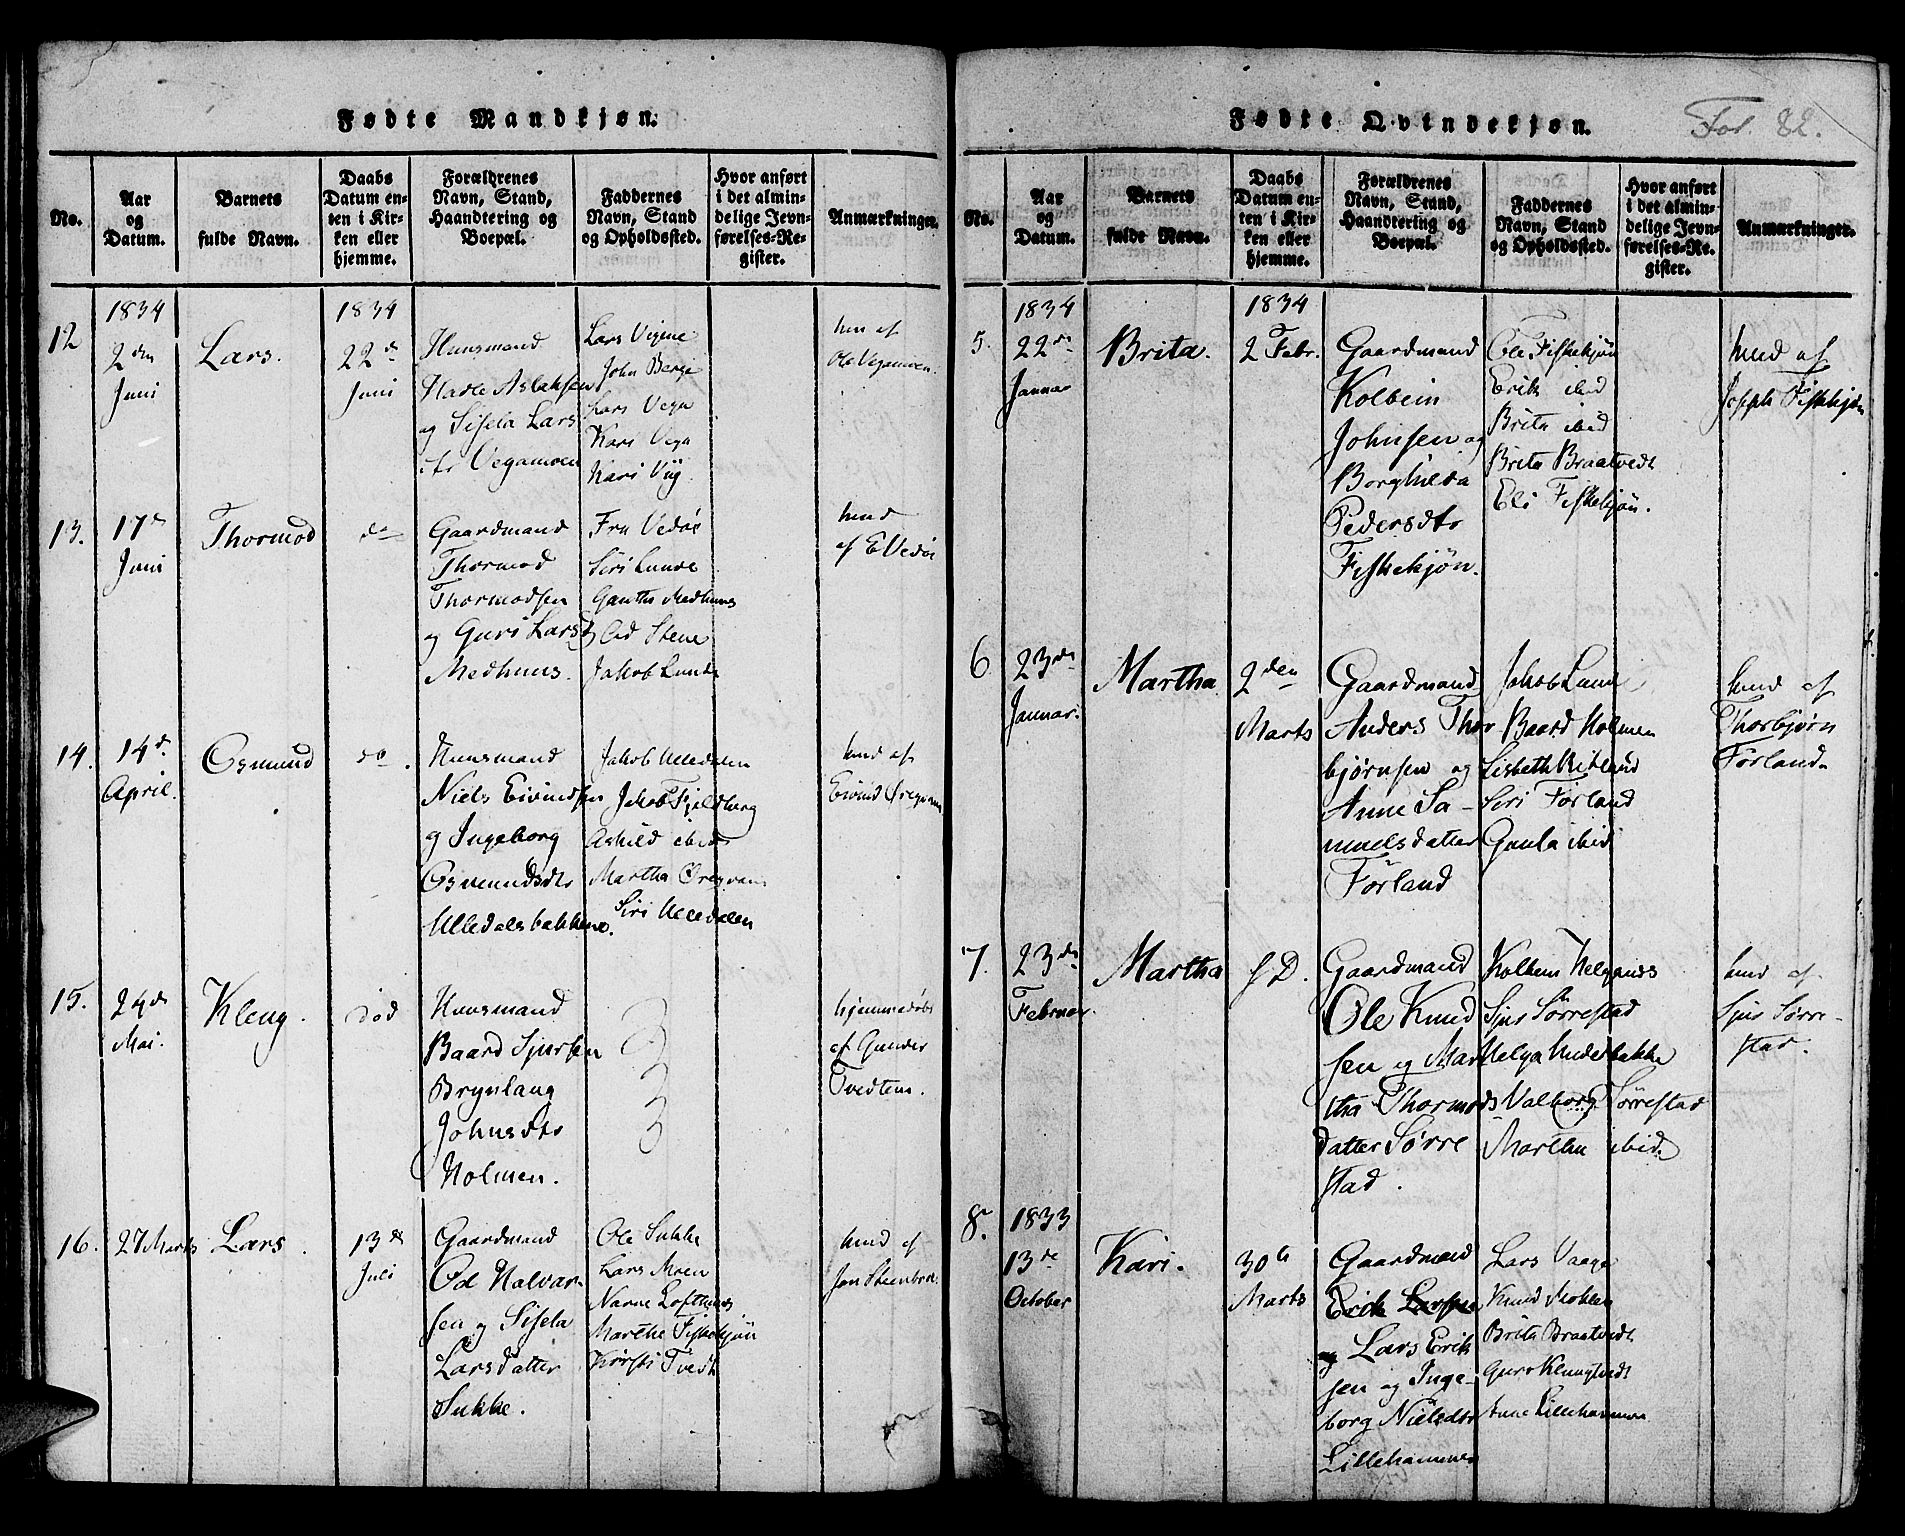 Fødte Mandkjøn.
No.
Aar og Datum.
Barnets fulde Navn.
Daabs Datum enten i Kirken eller hjemme.
Forældrenes Navn, Stand, Haandtering og Boepæl.
Faddernes Navn, Stand og Opholdssted.
Hvor anført i det almindelige Jevnførelses-Register.
Anmærkninger.
12
1834
2den
Juni
Lars.
1834
22de
Juni
Huusmand
Aslaksen
og Sisela Lars
dtr Vegamoen
Lars Vigene
John Berge
Lars Vega
Kari Vega
Kari Viig
hm af
Ole Vegamoen.
13.
17de
Juni
Thormod
do
Gaardmand
Thormod
Thormodsen
og Guri Larsd
Medhuus.
Fru Vedøe
Siri Lunde
Medhuus
Od Stene
Jakob Lunde
hmd
af E Vedøe
14.
14de
April.
Osmund
do.
Huusmand
Niels Eivindsen
og Ingeborg
Osmundsdtr
Ulledalsbakkene.
Jakob Ulledalen
Jakob Fjeldberg
Askild ibid
Martha
Siri Ulledalen
hmd af
Eivind
15.
24de
Mai.
Kleng.
død
Huusmand
Baard Sjursen
Brynlaug
Johnsdtr
Holmen.
hjemmedøbt
af Gunder
Tvedten.
16.
27 Marts
Lars.
13de
Juli
Gaardmand
Od Halvar-
sen og Sisela
Larsdatter
Sukke.
Ole Sukke
Lars Moen
Lofthuus
Marthe Fiskekjøn
Kirsti Tvedt
hmd af
Jon
Fødte Qvindekjøn.
Fol. 82.
No.
Aar og Datum.
Barnets fulde Navn.
Daabs Datum enten i Kirken eller hjemme.
Forældrenes Navn, Stand, Haandtering og Boepæl.
Faddernes Navn, Stand og Opholdssted.
Hvor anført i det almindelige Jevnførelses-Register.
Anmærkninger.
5.
1834
22de
Januar
Brita.
1834
2 Febr.
Gaardmand
Kolbein
Johnsen og
Borghilda
Pedersdtr
Fiskekjøn.
Ole Fiskekjøn
Erik ibid
Brita ibid
Brita Braatvedt
Eli Fiskekjøn.
hmd af
Joseph Fiskekjøn
6
23de
Januar.
Martha
2den
Marts
Gaardmand
Anders Thor
bjørnsen og
Anne Sa-
muelsdatter
Førland
Jakob Lunde
Baard Holmen
Lisbeth
Siri Førland
Gunla ibid
hmd af
Thorbjørn
Førland.
7.
23de
Februar.
Martha
s D.
Gaardmand
Ole Knud
sen og Mar
tha Thormods
datter Sørre
stad.
Kolbein Helganæs
Sjur Sørrestad
Helga
Valborg Sørrestad
Martha ibid.
hmd af
Sjur Sørre-
stad.
8.
1833
13de
October
Kari.
30te
Marts
Gaardmand
Erik Larsen
og Lars Erik
sen og Inge-
borg Nielsdtr
Lillehammer
Lars Vaage
Knud
Brita Braatvedt
Guro Klungtvedt
Anne Lillehammer